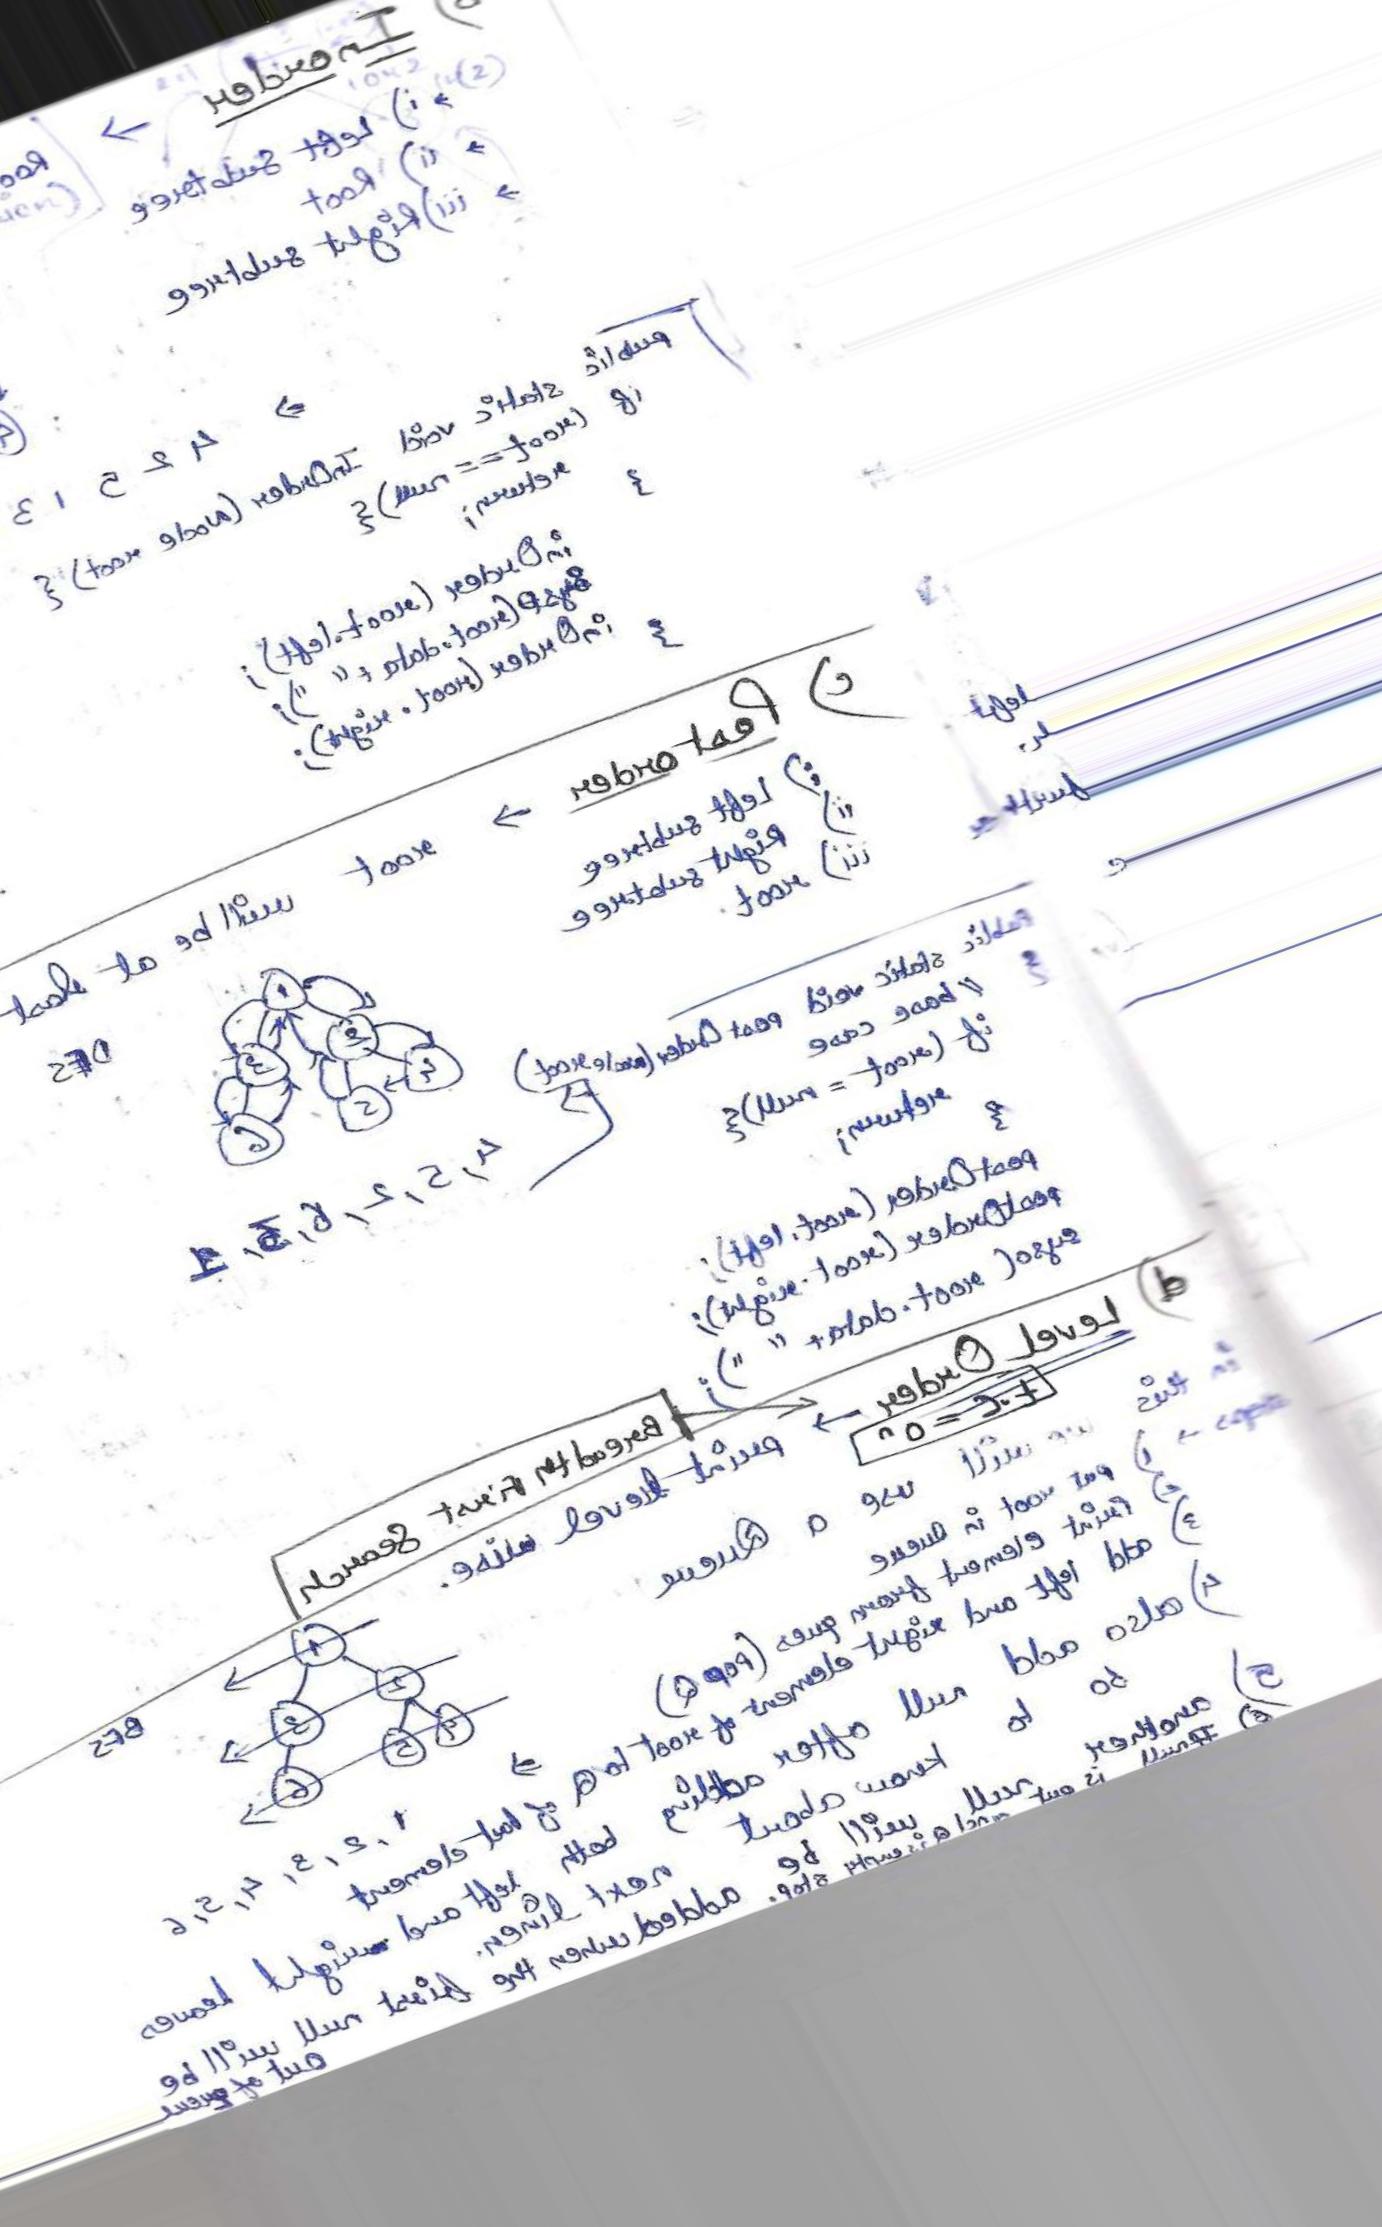 b) Inorder →
i) Left Subtree
ii) Root
iii) Right subtree
→ 4 2 5 1 3
public static void InOrder (node root) {
if (root == null) {
return;
}
inOrder (root.left);
syso (root.data + " ");
inOrder (root.right);
}
c) Post order → root will be at last
i) Left subtree
ii) Right subtree
iii) root.
DFS
1 2 3 4 5 6
Public static void postOrder (node root)
{
// base case
if (root = null) {
return;
}
postOrder (root.left);
postOrder (root.right);
syso( root.data + " ");
4, 5, 2, 6, 3, 1
d) Level Order → print level wise.
t.c = on
Bereadth First Search
BFS
1 2 3 4 5 6
In this we will use a Queue
1) put root in Queue
2) Print element from queue (pop Q)
3) add left and right element of root to Q of last element
→ 1, 2, 3, 4, 5, 6
4) also add null after adding both left and right leaves
so to know about next linen.
5) another null will be added when the first null will be out of queue
6) If null is out and Q is empty stop.
left